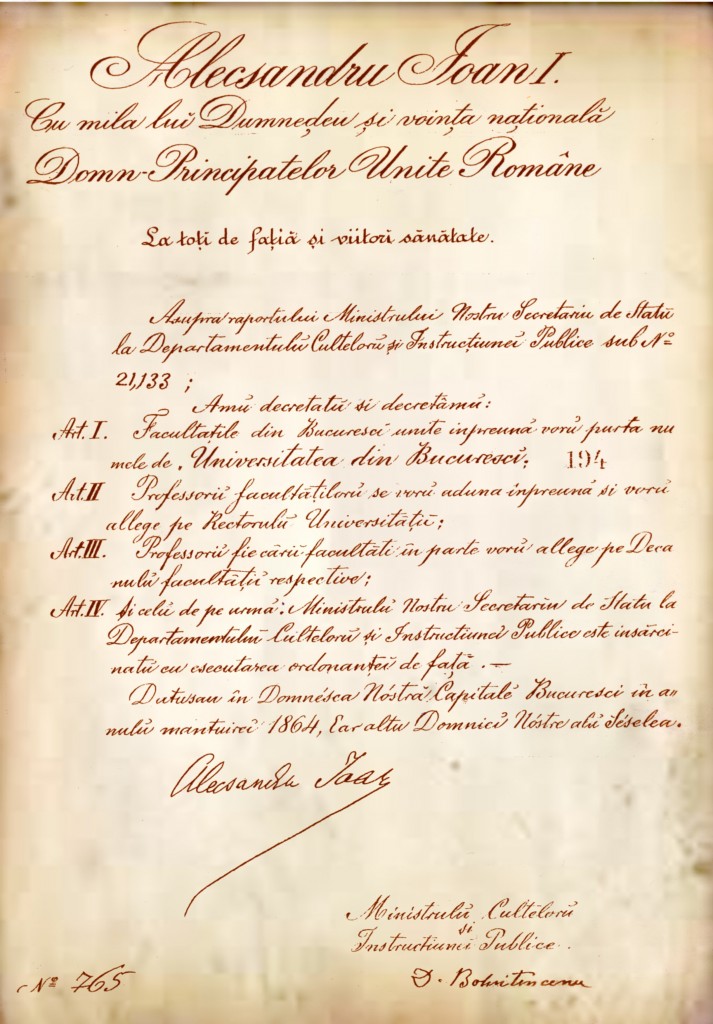 Alecsandru Joan I.
Cu mila lui Dumneḑeu și voința națională
Domn-Principatelor Unite Române
La toți de fațiă și viitori sănătate.
Asupra raportului Ministrului Nostru Secretariu de Statŭ
la Departamentulŭ Cultelorŭ și Instrucțiunei Publice sub Nº
21,133 ;
Amŭ decretatŭ si decretămŭ:
Art. I. Facultatile din Bucuresci unite inpreună vorŭ purta nu
mele de „Universitatea din Bucuresci; 194
Art. II Professorii facultățilorŭ se vorŭ aduna inpreună si vorŭ
allege pe Rectorulŭ Universitățiĭ;
Art. III. Professorii fie cării facultăti in parte vorŭ allege pe Deca
nulŭ facultățiĭ respective;
Art. IV. Și celŭ de pe urmă: Ministrulŭ Nostru Secretariu de Statu la
Departamentulŭ Cultelorŭ și Instructiunei Publice este insărci-
natŭ cu esecutarea ordonanței de față . —
Datusau în Domnésca Nóstră Capitală Bucuresci in a-
nulŭ mantuirei 1864, Ear altu Domnici Nóstre alŭ Séselea.
Alecsandru Joan
Ministrulŭ Cultelorŭ
și
Instructiunei Publice.
Nº 765 D. Bolintineanu